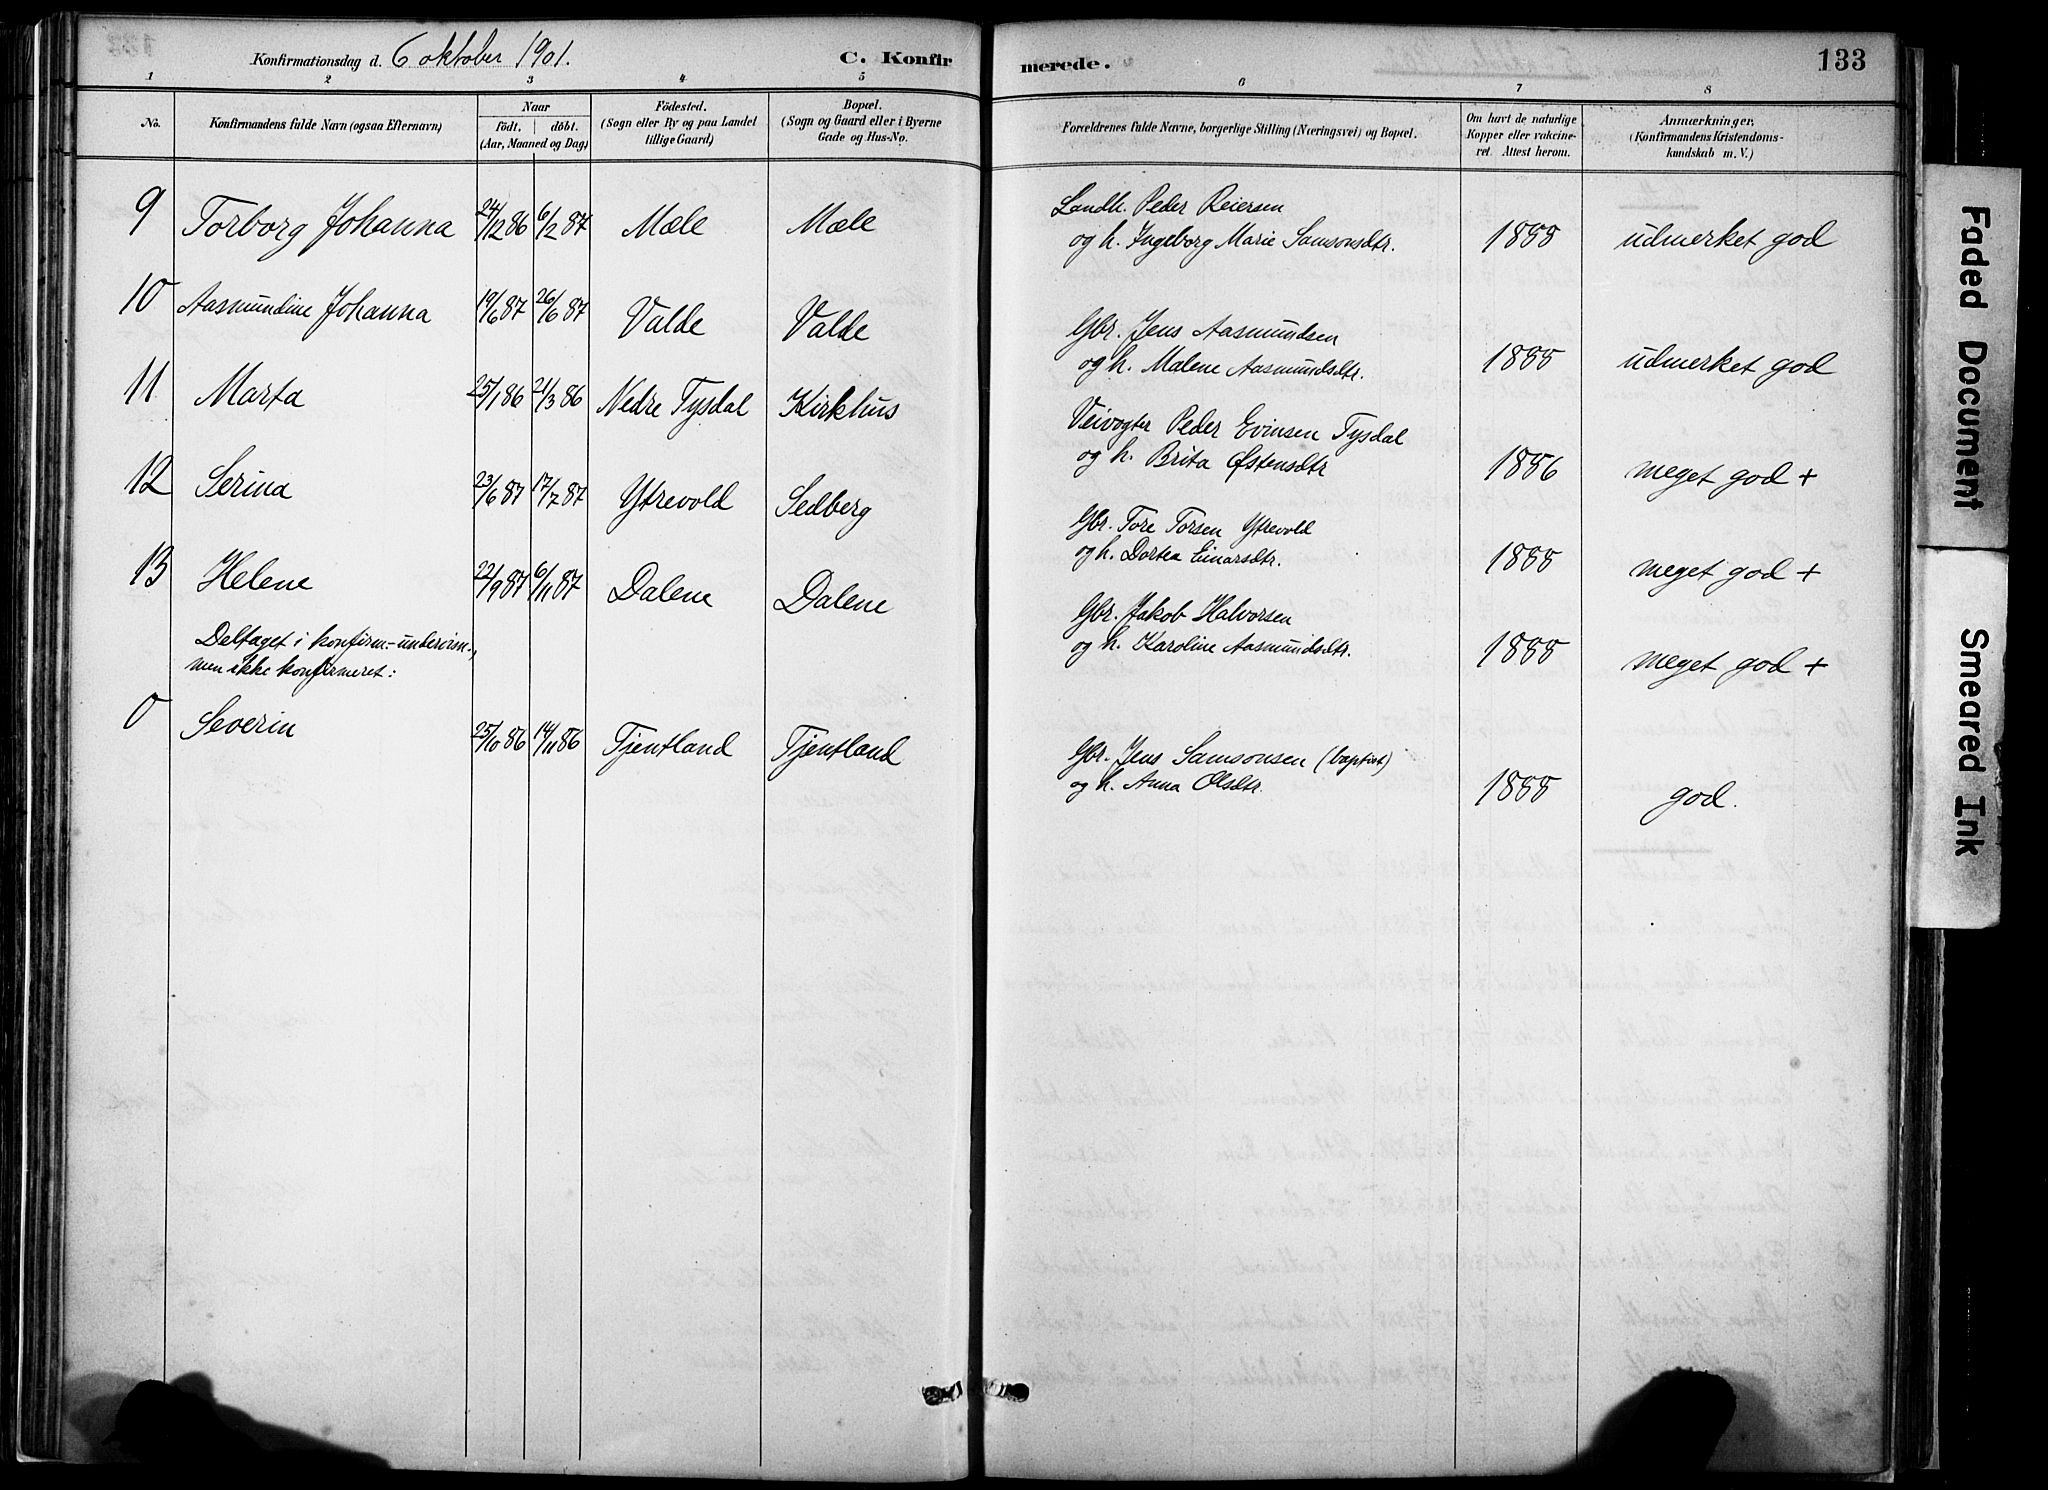 Konfirmationsdag d. 6 oktober 1901. C. Konfirmerede. 133
1 2 3 4 5 6 7 8
No. Konfirmandens fulde Navn (ogsaa Efternavn) Naar födt. döbt. (Aar, Maaned og Dag) Födested. (Sogn eller By og paa Landet tillige Gaard) Bopæl. (Sogn og Gaard eller i Byerne Gade og Hus-No. Forældrenes fulde Navne, borgerlige Stilling (Næringsvei) og Bopæl. Om havt de naturlige Kopper eller vakcineret. Attest herom. Anmærkninger, (Konfirmandens Kristendomskundskab m. V.)
9 Torborg Johanna 24/12 86 6/2 87 Mæle Mæle Landh. Peder Reiersen
og h. Ingeborg Marie Samsonsdtr. 1888 udmerket god
10 Aasmundine Johanna 19/6 87 26/6 87 Valde Valde Gbr. Jens Aasmundsen
og h. Malene Aasmundsdtr. 1888 udmerket god
11 Marta 25/1 86 21/3 86 Nedre Tysdal Kirkhus Veivogter Peder Evinsen Tysdal
og h. Brita Østensdtr 1886 meget god +
12 Serina 23/6 87 17/7 87 Ytrevold Sedberg Gbr. Tore Torsen Ytrevold
og h. Dortea Einarsdtr. 1888 meget god +
13 Helene 22/9 87 6/11 87 Dalene Dalene Gbr. Jakob Halvorsen
og h. Karoline Aasmundsdtr. 1888 meget god +
Deltaget i konfirm.-undervisn.,
men ikke konfirmeret:
0 Severin 25/10 86 14/11 86 Tjentland Tjentland Gbr. Jens Samsonsen (baptist)
og h. Anna Olsdtr. 1888 god.
Faded Document
Smeared Ink